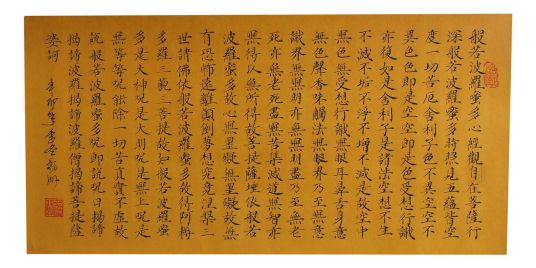 般若波羅蜜多心經觀自在菩薩行
深般若波羅蜜多時照見五蘊皆空
度一切苦厄舍利子色不異空空不
異色色即是空空即是色受想行識
亦復如是舍利子是諸法空想不生
不滅不垢不淨不增不減是故空中
無色無受想行識無眼耳鼻舌身意
無色聲香味觸法無眼界乃至無意
識界無無明亦無無明盡乃至無老
死亦無老死盡無苦集滅道無智亦
無得以無所得故菩提薩埵依般若
波羅蜜多故心無罣礙無罣礙故無
有恐怖遠離顛倒夢想究竟涅槃三
世諸佛依般若波羅蜜多故得阿耨
多羅三藐三菩提故知般若波羅蜜
多是大神呪是大明呪是無上呪是
無等等呪能除一切苦真實不虛故
說般若波羅蜜多呪即說呪曰揭諦
揭諦波羅揭諦波羅僧揭諦菩提薩
婆訶